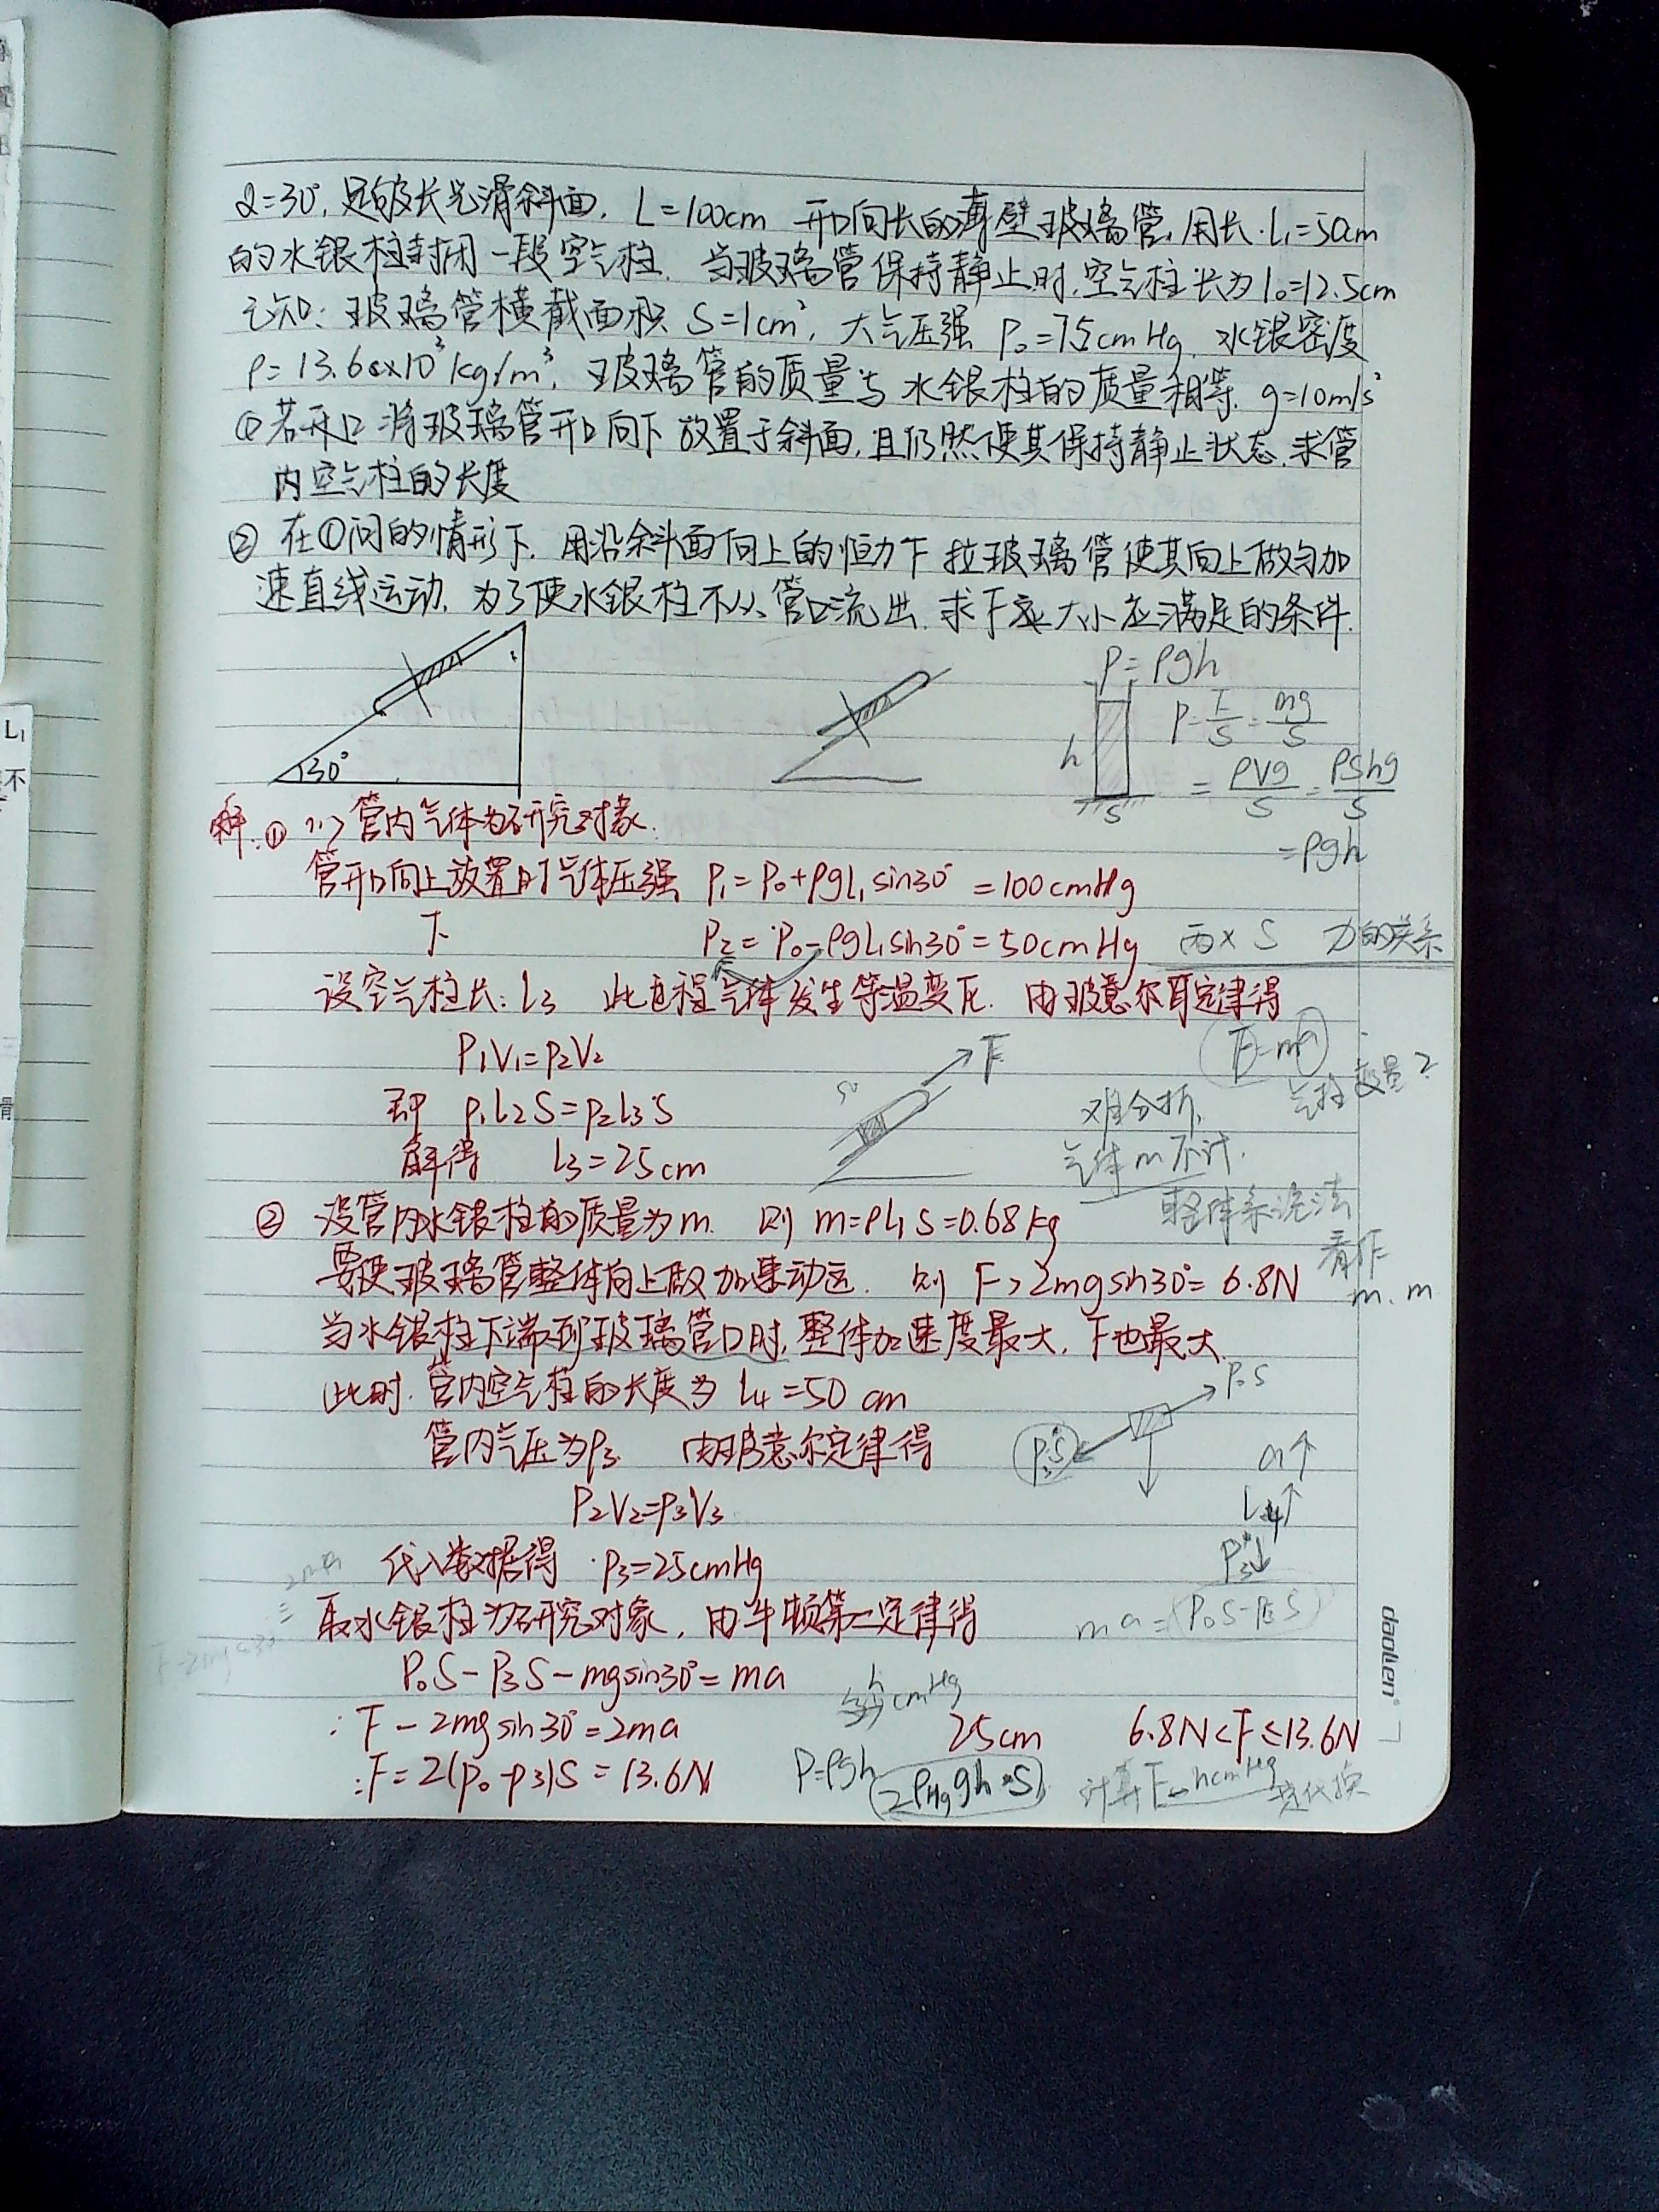 α=30°, 足够长光滑斜面, L=100cm 开口向长的薄壁玻璃管, 用长 L₁=50cm
的水银柱封闭一段空气柱, 当玻璃管保持静止时, 空气柱长为 l₀=12.5cm
已知: 玻璃管横截面积 S=1cm², 大气压强 P₀=75cmHg, 水银密度
ρ=13.6×10³kg/m³, 玻璃管的质量与水银柱的质量相等, g=10m/s²
① 若开口 将玻璃管开口向下放置于斜面, 且仍然使其保持静止状态, 求管
内空气柱的长度
② 在①问的情形下, 用沿斜面向上的恒力F拉玻璃管使其向上做匀加
速直线运动, 为了使水银柱不从管口流出, 求F 大小应满足的条件.
30°
P=ρgh
h
P=F/S=mg/S
=ρVg/S=ρShg/S
S
=ρgh
解: ① (1) 管内气体为研究对象.
管开口向上放置时气体压强 P₁=P₀+ρgL₁sin30°=100cmHg
下 P₂=P₀-ρgL₁sin30°=50cmHg 两×S 力的关系
设空气柱长: L₃ 此过程气体发生等温变化. 由玻意耳定律得
P₁V₁=P₂V₂
F
F=ma
即 P₁L₂S=P₂L₃S
难分析,
解得 L₃=25cm
气体m不计.
整体系统法
② 设管内水银柱的质量为m. 则 m=ρL₁S=0.68kg
看作
要使玻璃管整体向上做加速动运. 则 F>2mgsin30°=6.8N
m, m
当水银柱下端到玻璃管口时, 整体加速度最大, F也最大
此时, 管内空气柱的长度为 L₄=50cm
P₀S
P₃S
管内气压为P₃ 由玻意尔定律得
a↑
P₂V₂=P₃V₃
L₄↑
代入数据得 P₃=25cmHg
P₃↓
取水银柱为研究对象, 由牛顿第二定律得
ma=P₀S-P₃S
P₀S-P₃S-mgsin30°=ma
cmHg
∴F-2mgsin30°=2ma
25cm
6.8N<F≤13.6N
∴F=2(P₀-P₃)S=13.6N
P=ρgh
2ρHg gh·S
计算F hcmHg 替代换
daolen
L₁
不